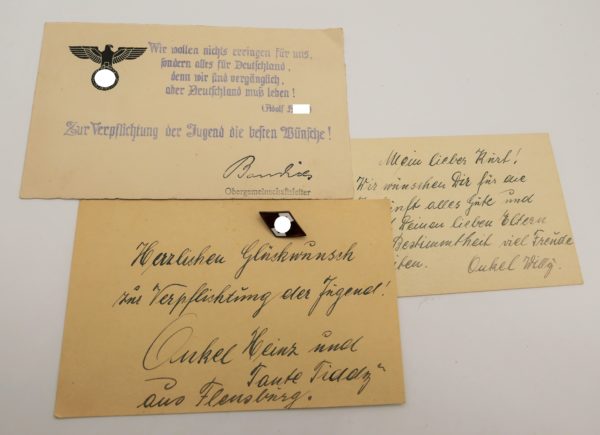 Wir wollen nichts erringen für uns,
sondern alles für Deutschland,
denn wir sind vergänglich,
aber Deutschland muß leben!
(Adolf
Zur Verpflichtung der Jugend die besten Wünsche!
Obergemeinschaftsleiter
Mein lieber Kurt!
Wir wünschen Dir für die
alles Gute und
Deinen lieben Eltern
Bestimmtheit viel Freude
Onkel Willy.
Herzlichen Glückwunsch
zur Verpflichtung der Jugend!
Onkel Heinz und
Tante Tiddy
aus Flensburg.